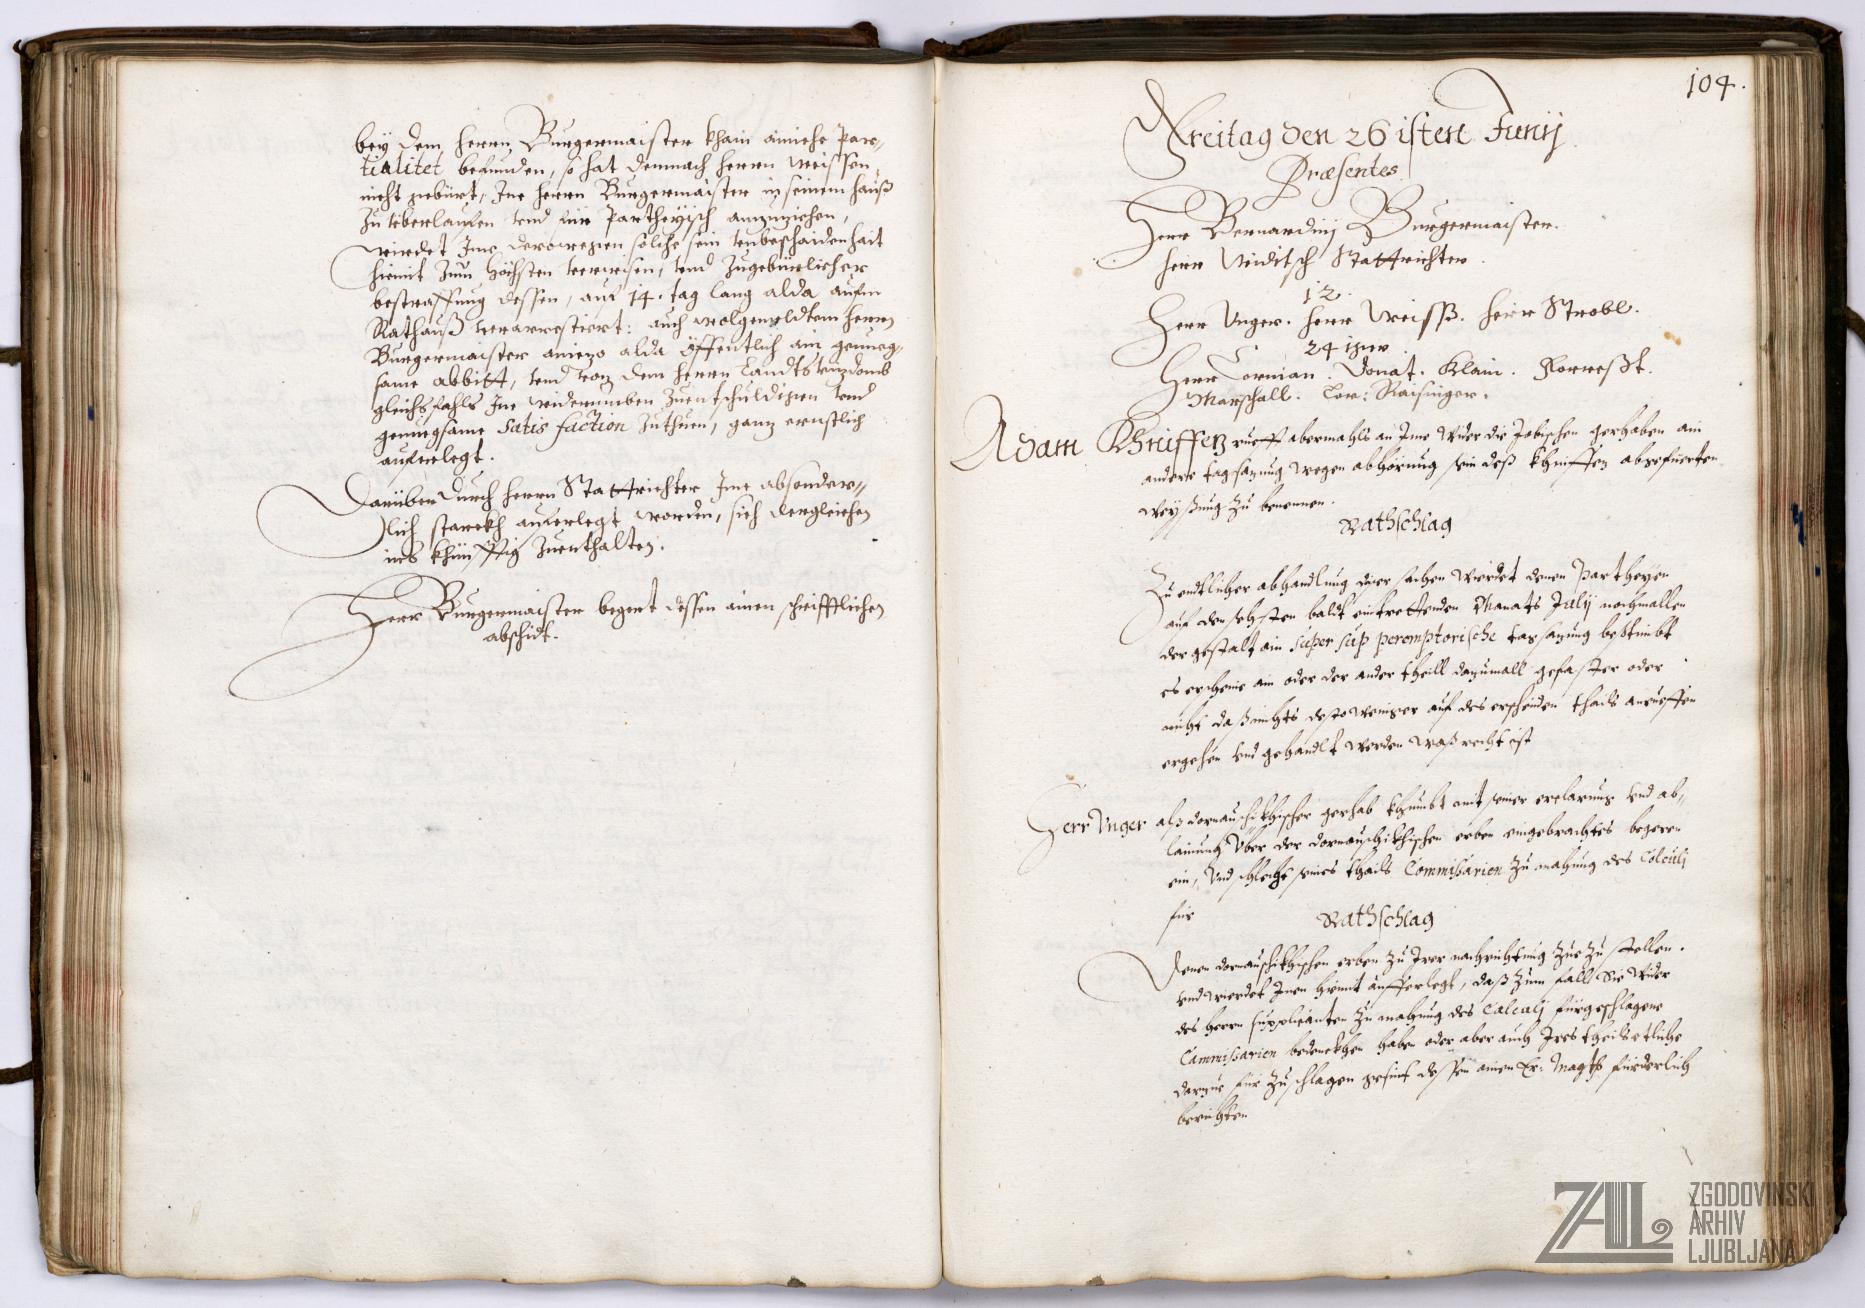 bey dem herrn Burgermaister khain ainiche Par„
tialitet befunden, so hat demnach herrn Weissen
nicht gebürt, Ine herrn Burgermaister in seinem hauß
zu überlaufen vnd für Partheyisch anzuziehen,
wirdet Ime derowegen solche sein vnbeschaidenhait
hiemit zum höchsten verwisen, vnd zugebürlicher
bestraffung dessen, auf 14. tag lang alda aufm
Rathauß verarrestiert: auch wolgemeldtem herrn
Burgermaister aniezo alda öffentlich ain genueg„
same abbitt, vnd von dem herrn Landtsvizdomb
gleichsfahls Ine widerumben zuentschuldigen vnd
genuegsame satisfaction zuthuen, ganz ernstlich
auferlegt.
Darüber durch herrn Stattrichter Ime absonder„
lich starckh auferlegt worden, sich dergleichen
ins khünfftig zuenthalten.
Herr Burgermaister begert dessen ainen schrifftlichen
abschidt.
104.
Freitag den 26isten Junij
Præsentes
Herr Bernardinj Burgermaister.
herr Viditsch Stattrichter.
12.
Herr Vnger. herr Weisß. herr Strobl.
24iger.
Herr Corman. Donat. Klain. Khorreßt.
Marschall. Cor: Raisinger.
Adam rueft abermahls an Ime wider die gerhaben ain
andere tagsazung wegen abhörung sein deß abgefüerten
weyßung zu benennen.
Rathschlag
Zu endtlicher abhandlung diser sachen wierdet denen Partheyen
auf den sehsten baldt eintrettenden Monats Julij nochmallen
der gestalt ain super sup peremptorische tagsazung bestimbt
es erscheine ain oder der ander theill dazumall gefaster oder
nicht daß nichts desto weniger auf des erscheinden thails anrueffen
ergehen vnd gehandlt werden waß recht ist
Herr Vnger alß gerhab khumbt mit seiner erclarung vnd ab„
lainung über der erben eingebrachtes begeren
ein, vnd schlecht seines thails Commißarien zu mahung des Calculj
für
Rathschlag
Denen erben zu Irer nachrichtung zue zu stellen.
vnd wierdet Inen hiemit aufferlegt, daß zum fall Sie wider
des herrn supplicanten zu mahung des Calculj fürgeschlagene
Commißarien bedenckhen haben oder aber auch Ires theils etliche
darzue für zu schlagen gesint dessen ainen Er: Magth: fürderlich
berichten
ZAL
ZGODOVINSKI
ARHIV
LJUBLJANA